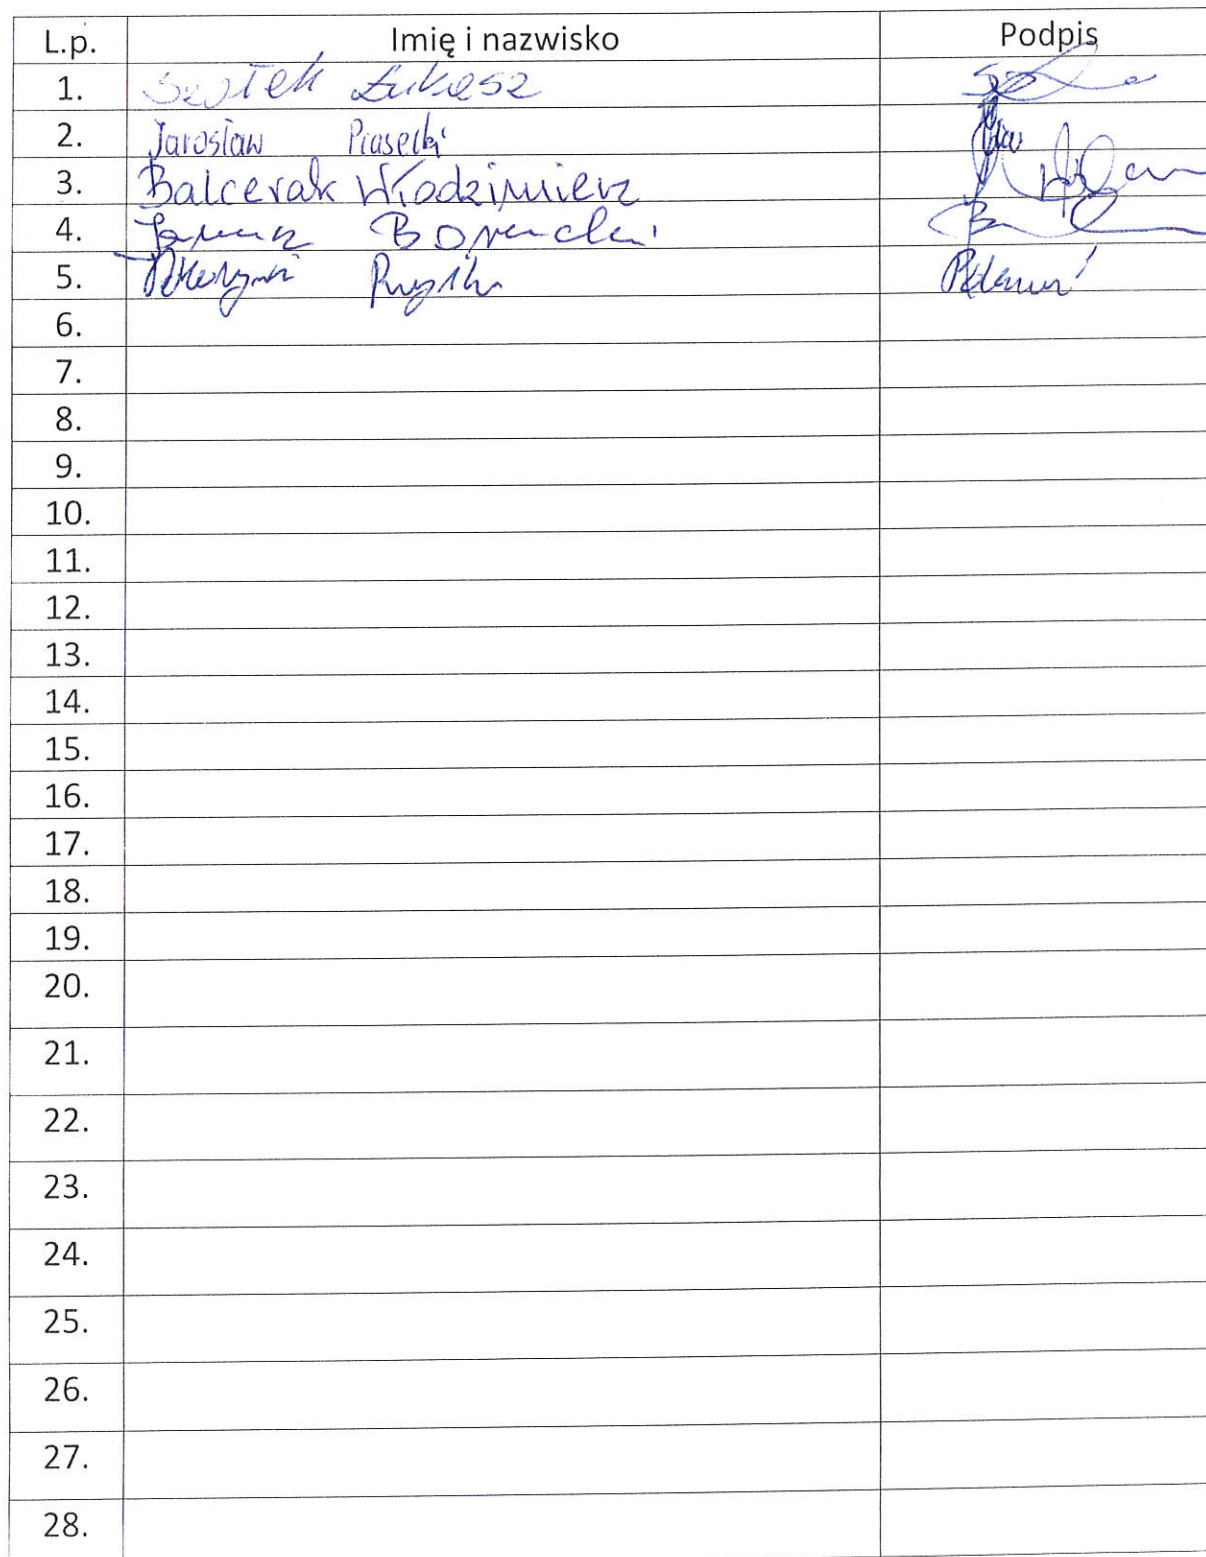 L.p. Imię i nazwisko Podpis
1. Szołek Łukasz
2. Jarosław Piasecki
3. Balcerak Włodzimierz
4. Janusz
5.
6.
7.
8.
9.
10.
11.
12.
13.
14.
15.
16.
17.
18.
19.
20.
21.
22.
23.
24.
25.
26.
27.
28.